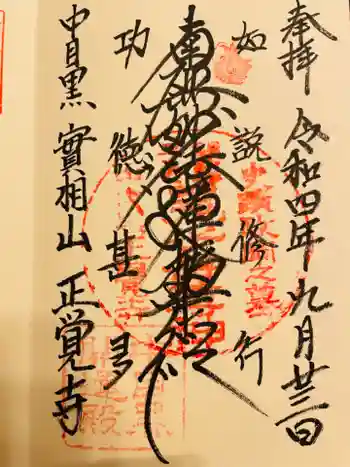 奉拝 令和四年九月廿三日
如説修行
南無妙法蓮華経
功徳甚多
中目黒 實相山 正覚寺